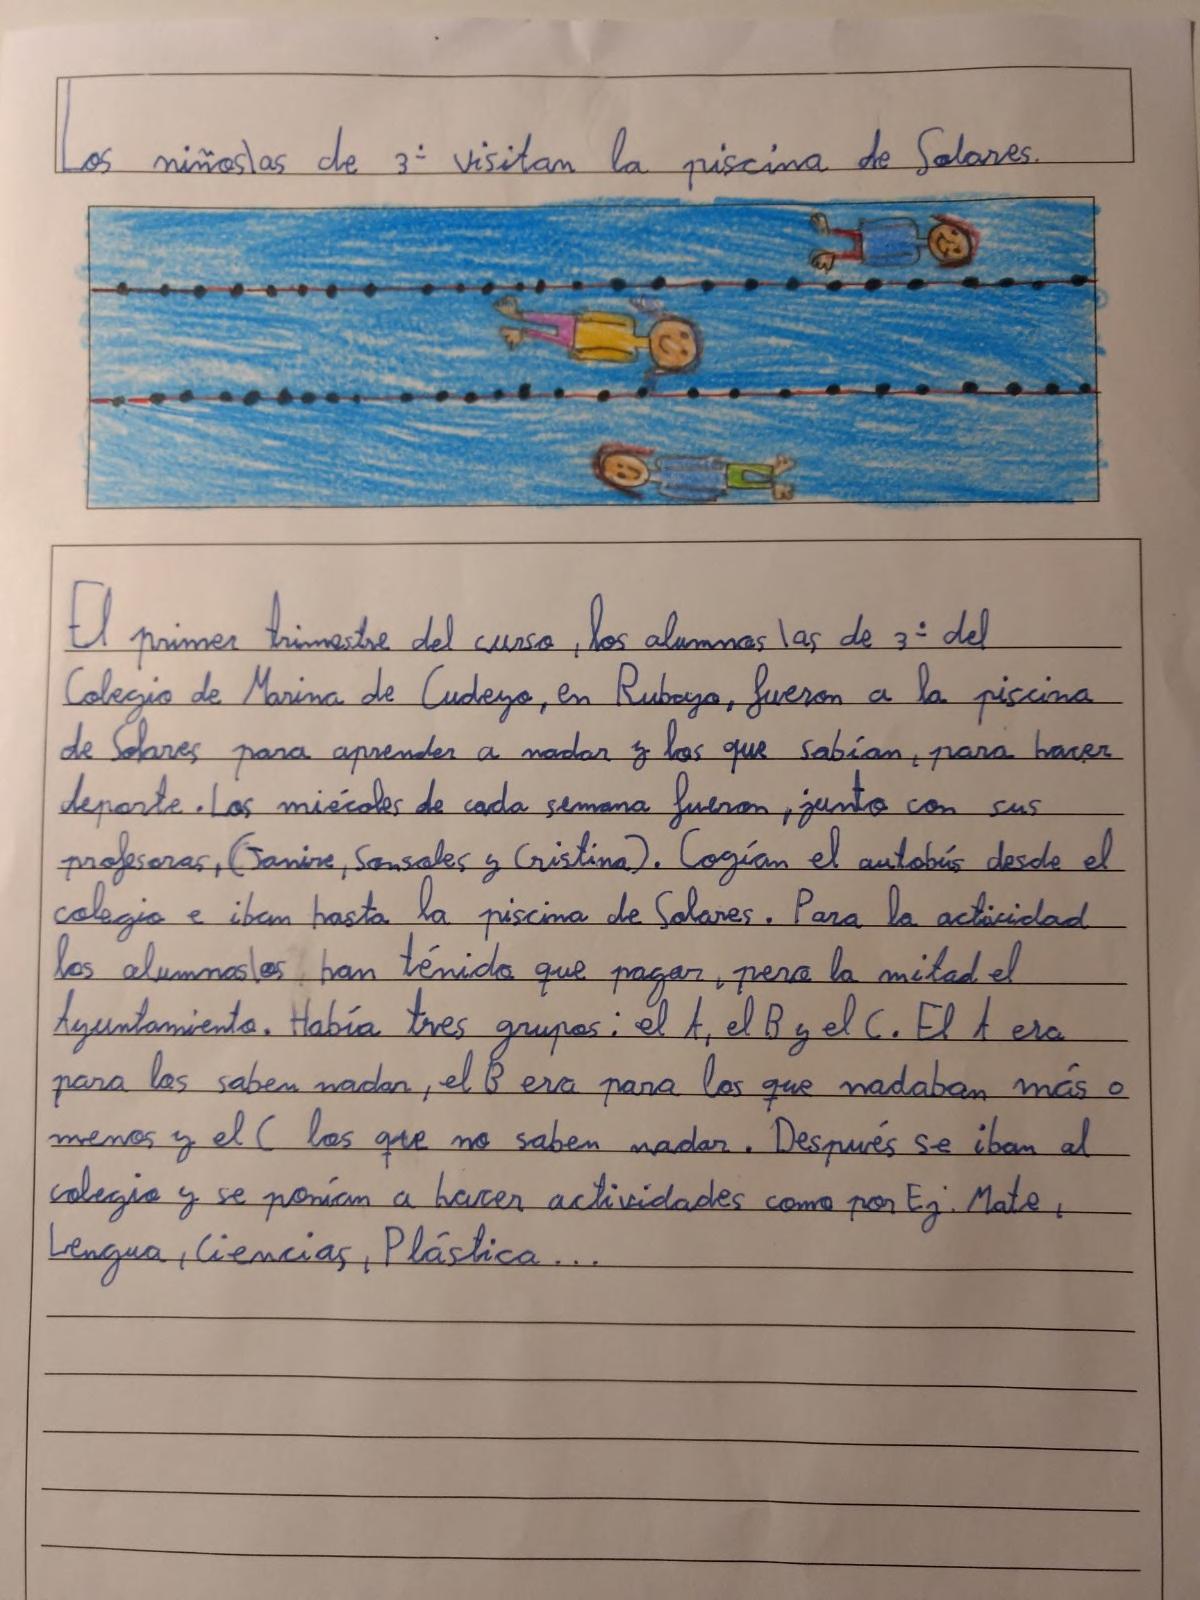 Los niños\as de 3º visitan la piscina de Solares.
El primer trimestre del curso, los alumnos\as de 3º del
Colegio de Marina de Cudeyo, en Rubayo, fueron a la piscina
de Solares para aprender a nadar y los que sabían, para hacer
deporte. Los miécoles de cada semana fueron, junto con sus
profesoras, (Janire, Sonsoles y Cristina). Cogían el autobús desde el
colegio e iban hasta la piscina de Solares. Para la actividad
los alumnos\as han ténido que pagar, pero la mitad el
Ayuntamiento. Había tres grupos: el A, el B y el C. El A era
para los saben nadar, el B era para los que nadaban más o
menos y el C los que no saben nadar. Después se iban al
colegio y se ponían a hacer actividades como por Ej: Mate,
Lengua, Ciencias, Plástica...